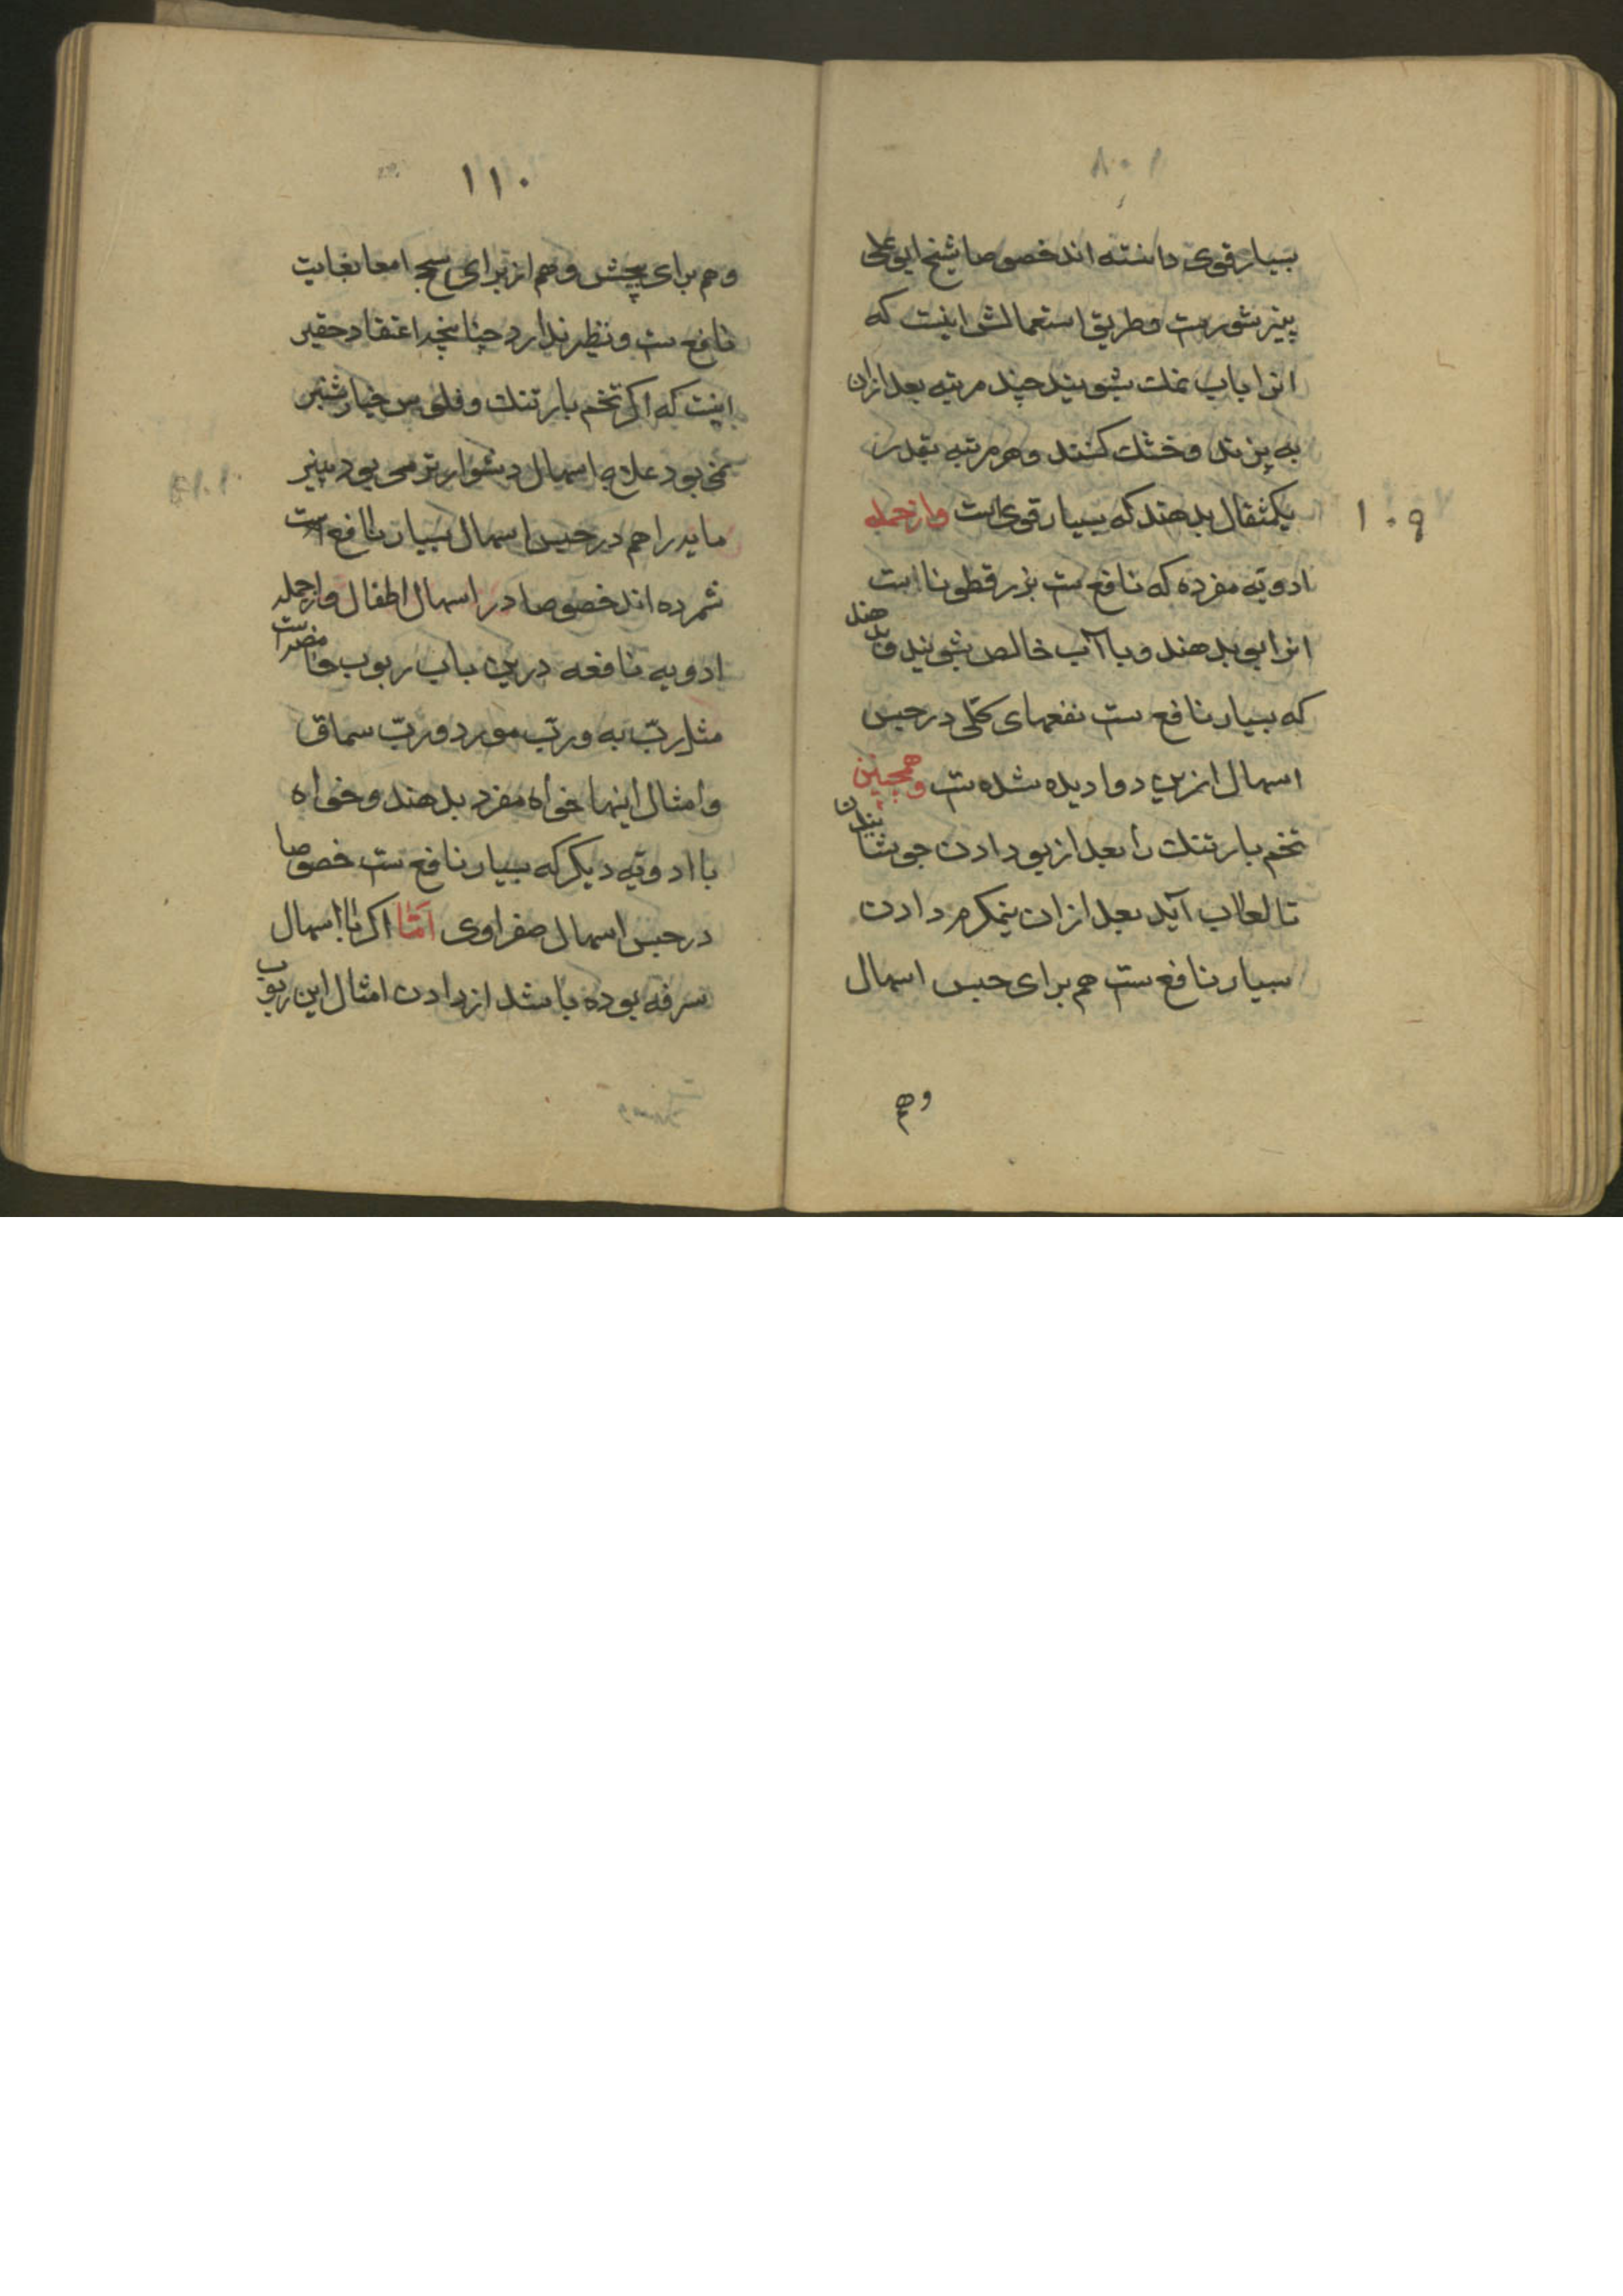 بسیار قوی دانسته اند خصوصا شیخ ابوعلی
پنیر شورست و طریق استعمالش اینست که
انرا باب نمک بشویند چند مرتبه بعد ازان
به پزند و خشک کنند و هر مرتبه بقدر
یکمثقال بدهند که بسیار قوی است و از جمله
۱۰۹
ادویه مفرده که نافع ست بزر قطونا است
انرا بو بدهند و با آب خالص بشویند و بدهند
که بسیار نافع ست نفعهای کلی در حبس
اسهال ازین دوا دیده شده ست و همچنین
تخم بارتنک را بعد از بو دادن جوشانیدن
تا لعاب آید بعد ازان نیمکرم دادن
بسیار نافع ست هم برای حبس اسهال
و هم
۱۱۰
و هم برای پیچش و هم از برای سحج امعا بغایت
نافع ست و نظیر ندارد چنانچه اعتقاد حقیر
اینست که اکر تخم بارتنک و فلوس خیارشنبر
نمی بود علاج اسهال دشوارتر می بود پنیر
مایه را هم در حبس اسهال بسیار نافع است
شمرده اند خصوصا در اسهال اطفال و از جمله
ادویه نافعه درین باب ربوب حامضه است
مثل رب به و رب مورد و رب سماق
و امثال اینها خواه مفرد بدهند و خواه
با ادویه دیکر که بسیار نافع ست خصوصا
در حبس اسهال صفراوی اما اکر با اسهال
سرفه بوده باشد از دادن امثال این ربوب